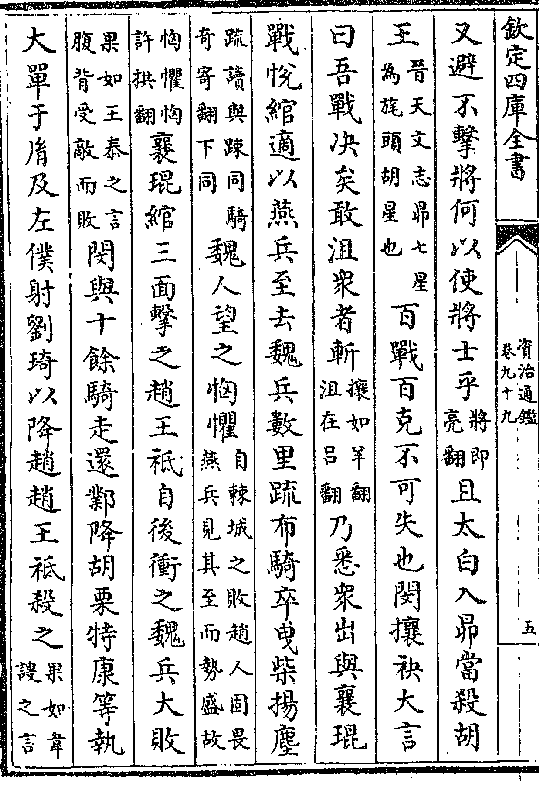 欽定四庫全書
資治通鑑
卷九十九
五
又避不擊將何以使將士乎將即亮翻且太白入昴當殺胡
王晉天文志昴七星為旄頭胡星也百戰百克不可失也閔攘袂大言
曰吾戰决矣敢沮衆者斬攘如羊翻沮在吕翻乃悉衆出與襄琨
戰悅綰適以燕兵至去魏兵數里疏布騎卒曳柴揚塵
疏讀與踈同騎奇寄翻下同魏人望之恟懼自棘城之敗趙人固畏燕兵見其至而勢盛故
恟懼恟許拱翻襄琨綰三面擊之趙王祗自後衝之魏兵大敗
果如王泰之言腹背受敵而敗閔與十餘騎走還鄴降胡栗特康等執
大單于𦙍及左僕射劉琦以降趙趙王祗殺之果如韋謏之言